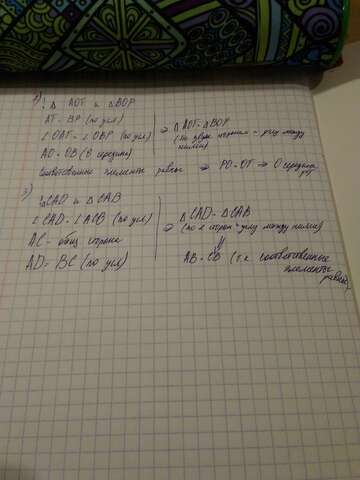 △ AOT и △ BOP
AT = BP (по усл)
∠OAT = ∠OBP (по усл) ⇒ △ AOT = △ BOP
(по двум сторонам и углу между ними)
AO = OB (О середина)
Соответственные элементы равны ⇒ PO = OT ⇒ O середина
3)
△CAD и △ CAB
∠CAD = ∠ACB (по усл) ⇒ △ CAD = △ CAB
(по 2 сторон и углу между ними)
AC - общ сторона
AD = BC (по усл)
AB = CD (т.к соответственные
элементы
равны)